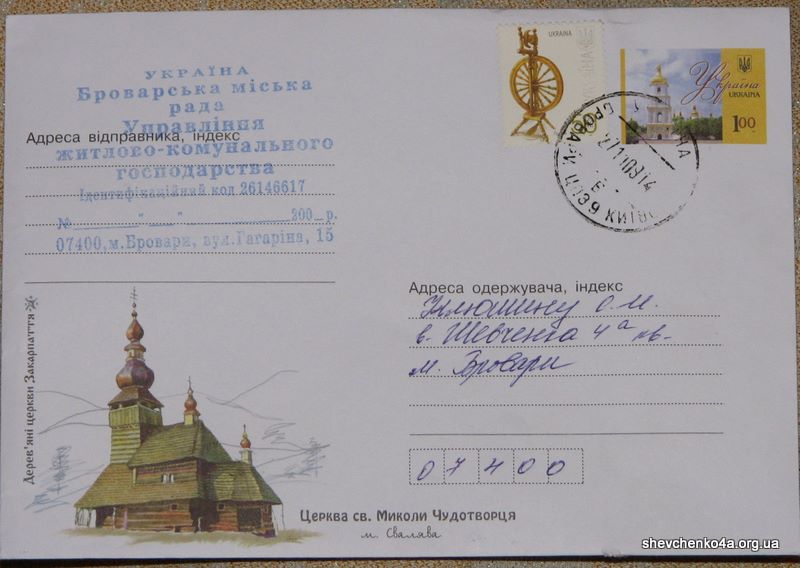 УКРАЇНА
Броварська міська
рада
Управління
житлово-комунального
господарства
Ідентифікаційний код 26146617
№ " " 200 р.
07400,м.Бровари, вул.Гагаріна, 15
Адреса відправника, індекс
UKRAINA
Україна
UKRAINE
1.00
БРОВАРИ
КИЇВ
Адреса одержувача, індекс
Клюшину О.М.
в. Шевченка 4а кв-
м. Бровари
07400
Дерев'яні церкви Закарпаття
Церква св. Миколи Чудотворця
м. Свалява
shevchenko4a.org.ua